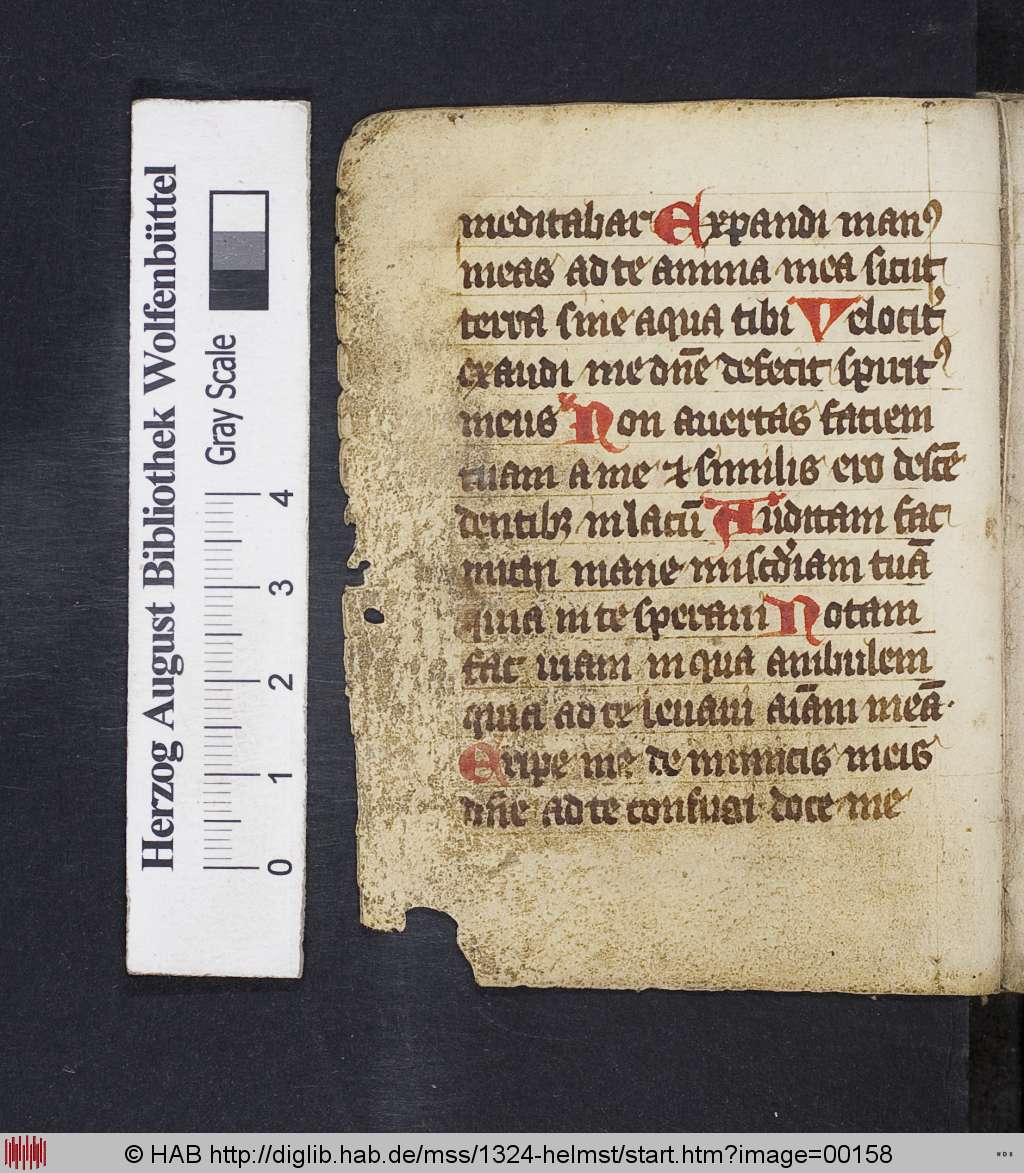 Herzog August Bibliothek Wolfenbüttel
Gray Scale
0 1 2 3 4
meditabar Expandi man⁹
meas ad te anima mea sicut
terra sine aqua tibi Velocit᷑
exaudi me dn̄e defecit spirit⁹
meus Non auertas faciem
tuam a me ⁊ similis ero descē
dentibꝫ in lacū Auditam fac
michi mane miscd᷑iam tuā
quia in te speraui Notam
fac uiam in qua ambulem
quia ad te leuaui aīam meā·
Eripe me de inimicis meis
dn̄e ad te confugi doce me
© HAB http://diglib.hab.de/mss/1324-helmst/start.htm?image=00158